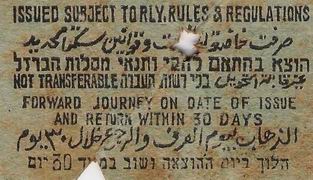 ISSUED SUBJECT TO RLY. RULES & REGULATIONS
صرفت وقوانين سكة حديد
הוצא בהתאם לחקי ותנאי מסלות הברזל
NOT TRANSFERABLE בלי רשות העברה
FORWARD JOURNEY ON DATE OF ISSUE
AND RETURN WITHIN 30 DAYS
الذهاب يوم الصرف والرجوع خلال ٣٠ يوم
הלוך ביום ההוצאה ושוב 30 יום